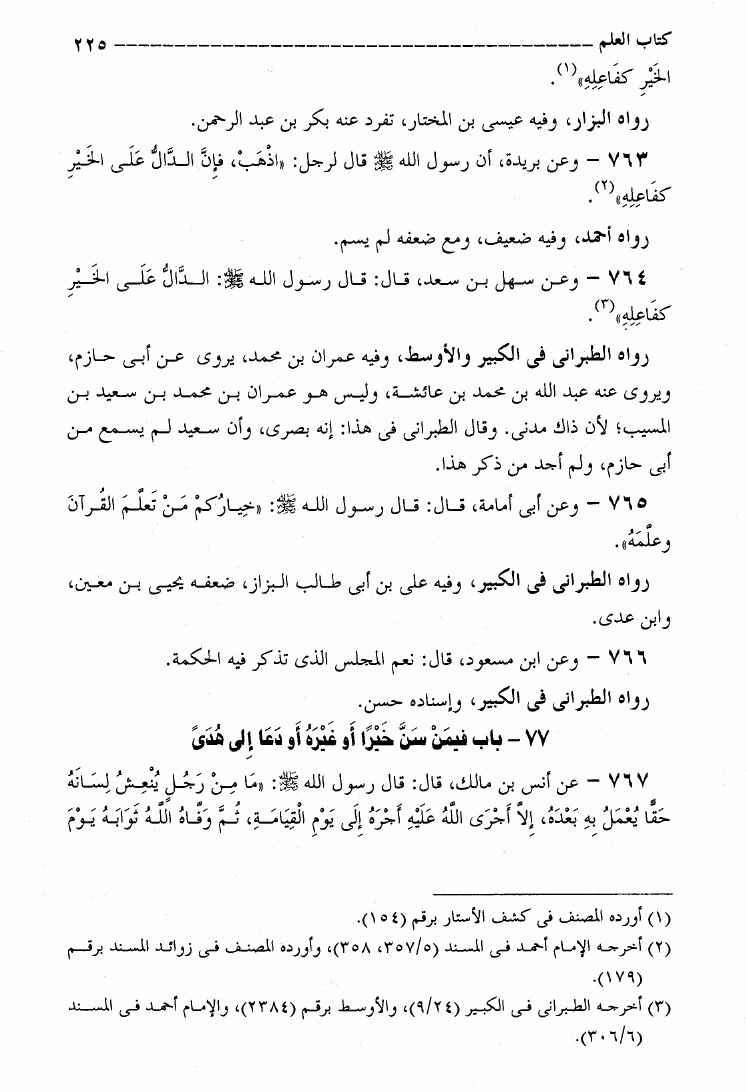 كتاب العلم ــــــــــــــــــــــــــــــــــــــــــــــــــــ ٢٢٥
الخَيْرِ كفَاعِلِهِ»(١).
رواه البزار، وفيه عيسى بن المختار، تفرد عنه بكر بن عبد الرحمن.
٧٦٣ – وعن بريدة، أن رسول الله ﷺ قال لرجل: «اذْهَبْ، فإنَّ الـدَّالَّ عَلَـى الخَـيْرِ
كفَاعِلِهِ»(٢).
رواه أحمد، وفيه ضعيف، ومع ضعفه لم يسم.
٧٦٤ – وعـن سـهل بـن سعد، قـال: قـال رسـول اللـه ﷺ: الـدَّالُّ عَلَـى الخَـيْرِ
كفَاعِلِهِ»(٣).
رواه الطبرانى فى الكبير والأوسط، وفيه عمران بن محمد، يروى عـن أبـى حـازم،
ويروى عنه عبد الله بن محمد بن عائشـة، وليـس هـو عمـران بـن محمـد بـن سـعيد بـن
المسيب؛ لأن ذاك مدنى. وقال الطبرانى فى هذا: إنه بصرى، وأن سعيد لـم يسـمع مـن
أبى حازم، ولم أجد من ذكر هذا.
٧٦٥ – وعن أبى أمامة، قـال: قـال رسـول اللـه ﷺ: «خِيـارُكمْ مَـنْ تَعلَّـمَ القُـرآنَ
وعلَّمَهُ».
رواه الطبرانى فى الكبير، وفيه على بن أبى طـالب الـبزاز، ضعفـه يحيـى بـن معـين،
وابن عدى.
٧٦٦ – وعن ابن مسعود، قال: نعم المجلس الذى تذكر فيه الحكمة.
رواه الطبرانى فى الكبير، وإسناده حسن.
٧٧ – باب فيمَنْ سَنَّ خَيْرًا أو غَيْرَهُ أو دَعَا إلى هُدَىً
٧٦٧ – عن أنس بن مالك، قال: قال رسول الله ﷺ: «مَا مِـنْ رَجُـلٍ يُنْعِـشُ لِسَـانَهُ
حَقًّا يُعْمَلُ بِهِ بَعْدَهُ، إلاَّ أَجْرَى اللَّهُ عَلَيْهِ أَجْرَهُ إلَى يَوْمِ الْقِيَامَـةِ، ثُـمَّ وَفَّاهُ اللَّـهُ ثَوَابَـهُ يَـوْمَ
(١) أورده المصنف فى كشف الأستار برقم (١٥٤).
(٢) أخرجـه الإمـام أحمـد فـى المسـند (٣٥٧/٥، ٣٥٨)، وأورده المصنـف فـى زوائـد المسـند برقـم
(١٧٩).
(٣) أخرجـه الطـبرانى فـى الكبـير (٩/٢٤)، والأوسـط برقـم (٢٣٨٤)، والإمـام أحمـد فـى المسـند
(٣٠٦/٦).